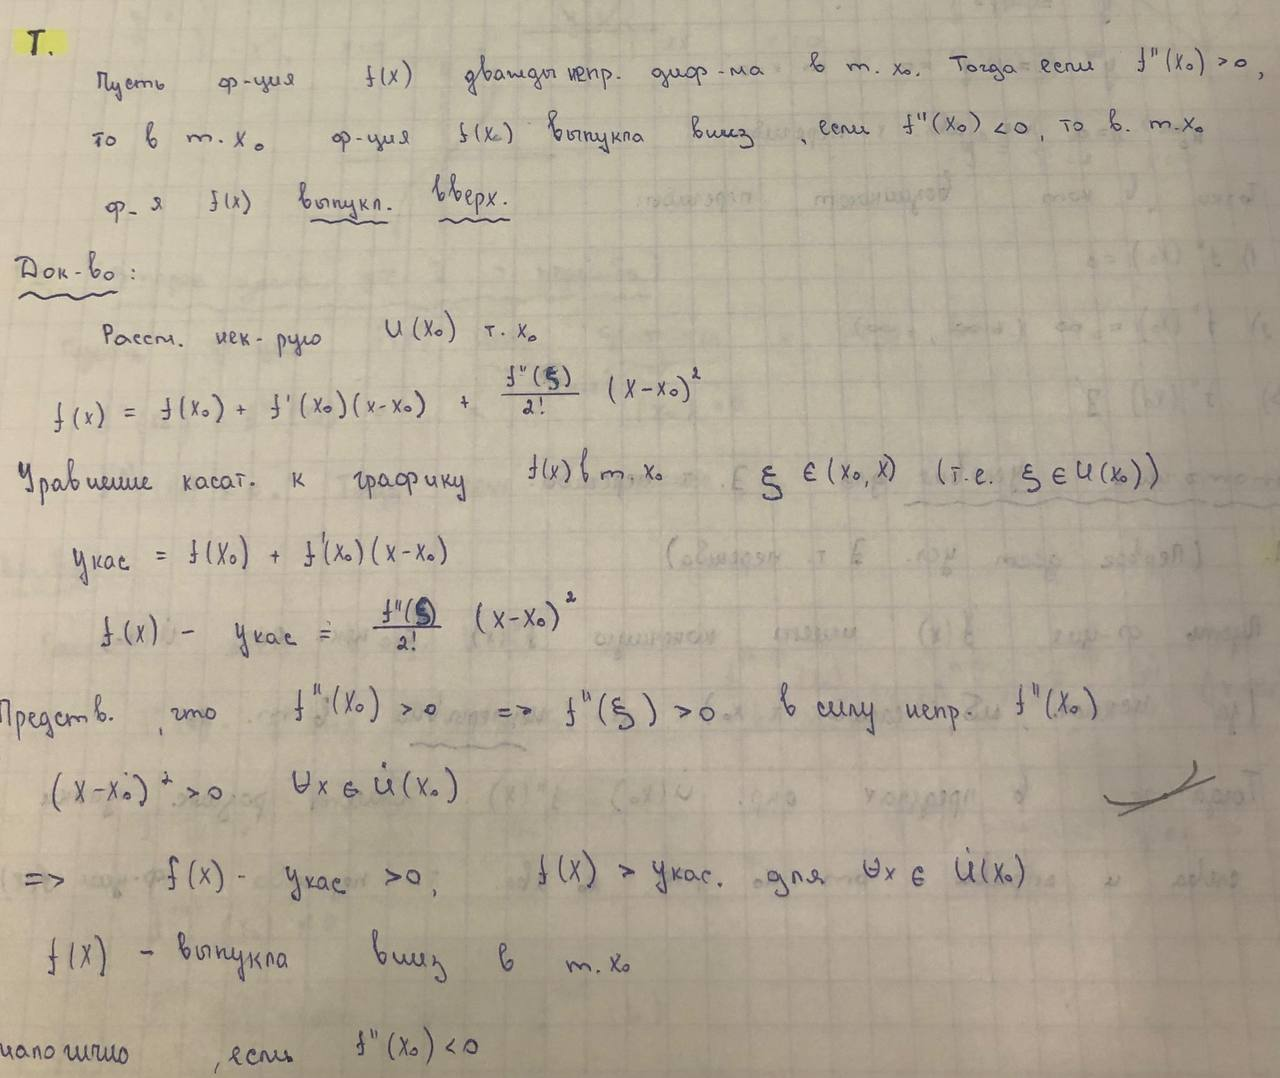 Т.
Пусть ф-ция f(x) дважды непр. диф-ма в т. x₀. Тогда если f''(x₀) >0,
то в т. x₀ ф-ция f(x) выпукла вниз, если f''(x₀) <0, то в. т. x₀
ф-я f(x) выпукл. вверх.
Док-во:
Рассм. нек-рую U(x₀) т. x₀
f(x) = f(x₀) + f'(x₀)(x-x₀) + f''(ξ)/2! (x-x₀)²
Уравнение касат. к графику f(x) в т. x₀ ξ ∈ (x₀, x) (т.е. ξ ∈ U(x₀))
yкас = f(x₀) + f'(x₀)(x-x₀)
f(x) - yкас = f''(ξ)/2! (x-x₀)²
Предств., что f''(x₀) >0 => f''(ξ) >0 в силу непр. f''(x₀)
(x-x₀)² >0 ∀x ∈ U̇(x₀)
=> f(x) - yкас >0, f(x) > yкас. для ∀x ∈ U̇(x₀)
f(x) - выпукла вниз в т. x₀
налогично, если f''(x₀) <0